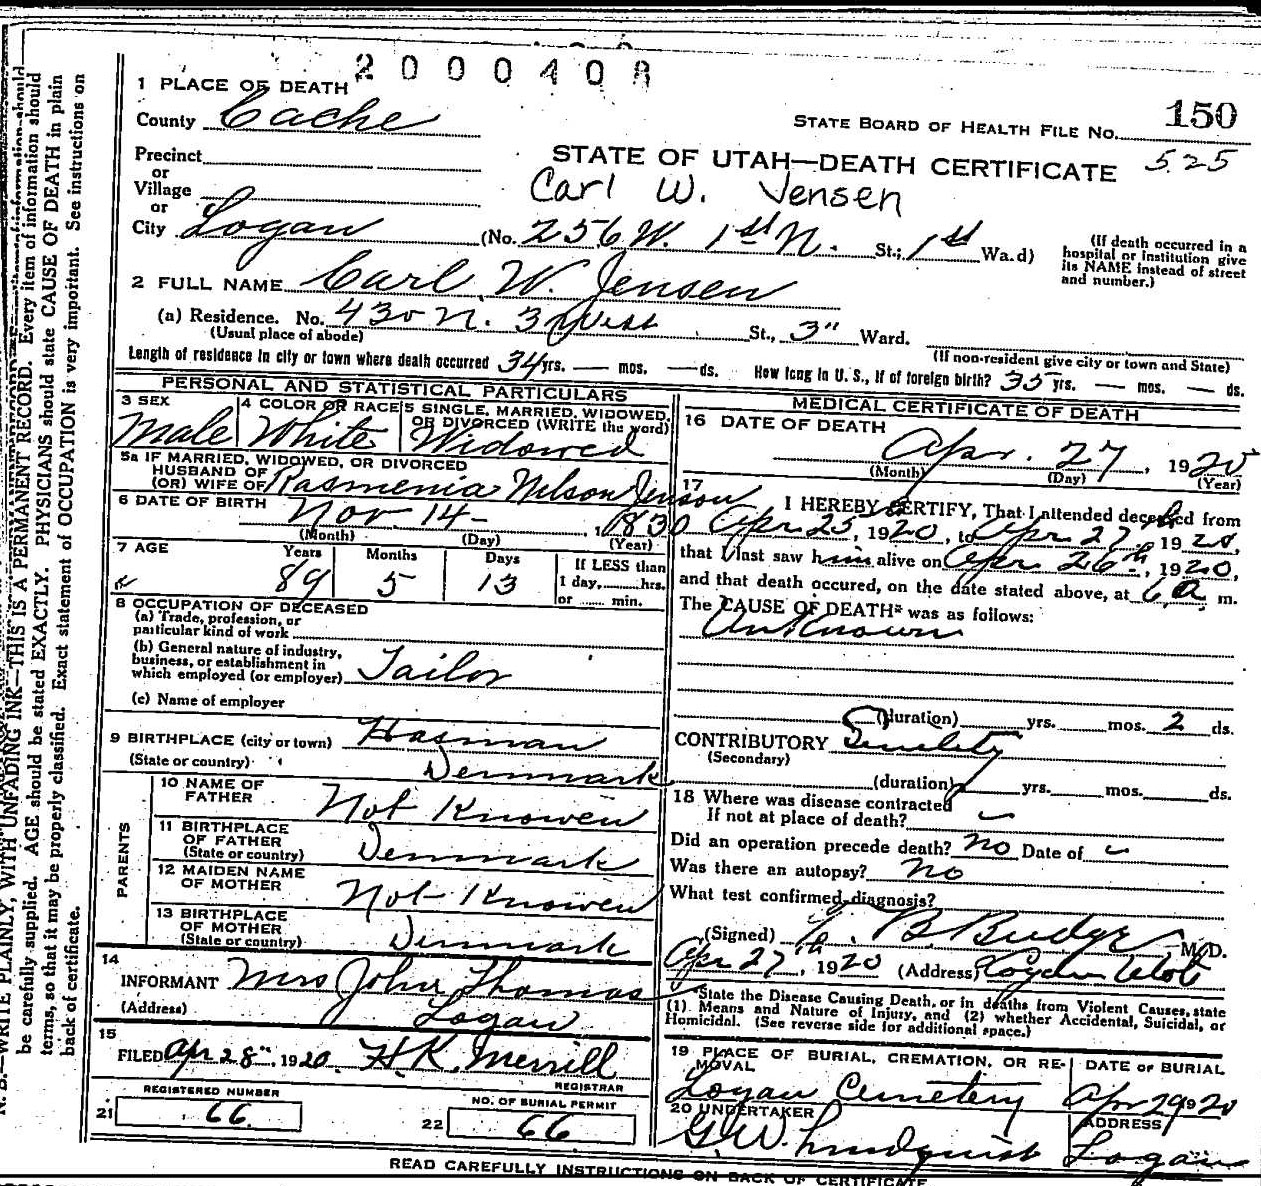 2000408
1 PLACE OF DEATH
County Cache
STATE BOARD OF HEALTH FILE NO. 150
525
STATE OF UTAH—DEATH CERTIFICATE
Carl W. Jensen
Precinct
or
Village
or
City Logan (No. 256 W. 1st N. St.; 1st Wa.d)
(If death occurred in a
hospital or institution give
its NAME instead of street
and number.)
2 FULL NAME Carl W. Jensen
(a) Residence. No. 430 N. 3 West St., 3" Ward.
(Usual place of abode)
(If non-resident give city or town and State)
Length of residence in city or town where death occurred 34 yrs. — mos. — ds. How long in U. S., if of foreign birth? 35 yrs. — mos. — ds.
PERSONAL AND STATISTICAL PARTICULARS
3 SEX
Male
4 COLOR OR RACE
White
5 SINGLE, MARRIED, WIDOWED,
OR DIVORCED (WRITE the word)
Widowed
5a IF MARRIED, WIDOWED, OR DIVORCED
HUSBAND OF
(OR) WIFE OF Rasmenia Nelson Jenson
6 DATE OF BIRTH Nov 14 - 1830
(Month) (Day) (Year)
7 AGE
Years Months Days
89 5 13
If LESS than
1 day, hrs.
or min.
8 OCCUPATION OF DECEASED
(a) Trade, profession, or
particular kind of work
(b) General nature of industry,
business, or establishment in
which employed (or employer) Tailor
(c) Name of employer
9 BIRTHPLACE (city or town) Hasman
(State or country) Denmark
PARENTS
10 NAME OF
FATHER Not Knowen
11 BIRTHPLACE
OF FATHER
(State or country) Denmark
12 MAIDEN NAME
OF MOTHER Not Knowen
13 BIRTHPLACE
OF MOTHER
(State or country) Denmark
14
INFORMANT Mrs John Thomas
(Address) Logan
15
FILED Apr 28", 1920. H. K. Merrill
REGISTRAR
REGISTERED NUMBER
21 66
NO. OF BURIAL PERMIT
22 66
MEDICAL CERTIFICATE OF DEATH
16 DATE OF DEATH
Apr. 27, 1920
(Month) (Day) (Year)
17
I HEREBY CERTIFY, That I attended deceased from
Apr 25, 1920, to Apr 27, 1920,
that I last saw him alive on Apr 26th, 1920,
and that death occured, on the date stated above, at 6 a m.
The CAUSE OF DEATH* was as follows:
Unknown
(duration) yrs. mos. 2 ds.
CONTRIBUTORY Senility
(Secondary)
(duration) yrs. mos. ds.
18 Where was disease contracted
If not at place of death?
Did an operation precede death? No Date of
Was there an autopsy? No
What test confirmed diagnosis?
(Signed) B Budge M. D.
Apr 27th, 1920 (Address) Logan Utah
*State the Disease Causing Death, or in deaths from Violent Causes, state
(1). Means and Nature of Injury, and (2) whether Accidental, Suicidal, or
Homicidal. (See reverse side for additional space.)
19 PLACE OF BURIAL, CREMATION, OR RE-
MOVAL
Logan Cemetery
DATE OF BURIAL
Apr 29 1920
20 UNDERTAKER
G. W. Lindquist
ADDRESS
Logan
READ CAREFULLY INSTRUCTIONS ON BACK OF CERTIFICATE
N. B.—WRITE PLAINLY, WITH UNFADING INK—THIS IS A PERMANENT RECORD. Every item of information should
be carefully supplied. AGE should be stated EXACTLY. PHYSICIANS should state CAUSE OF DEATH in plain
terms, so that it may be properly classified. Exact statement of OCCUPATION is very important. See instructions on
back of certificate.